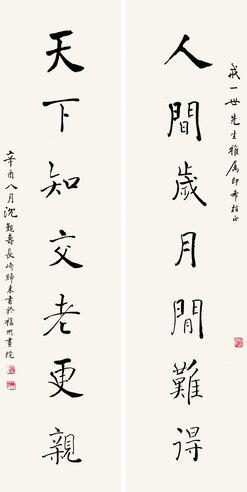 戒一世先生雅属即希指正
人間歲月閒難得
天下知交老更親
辛酉八月沈覲壽長崎歸来書於福州畫院